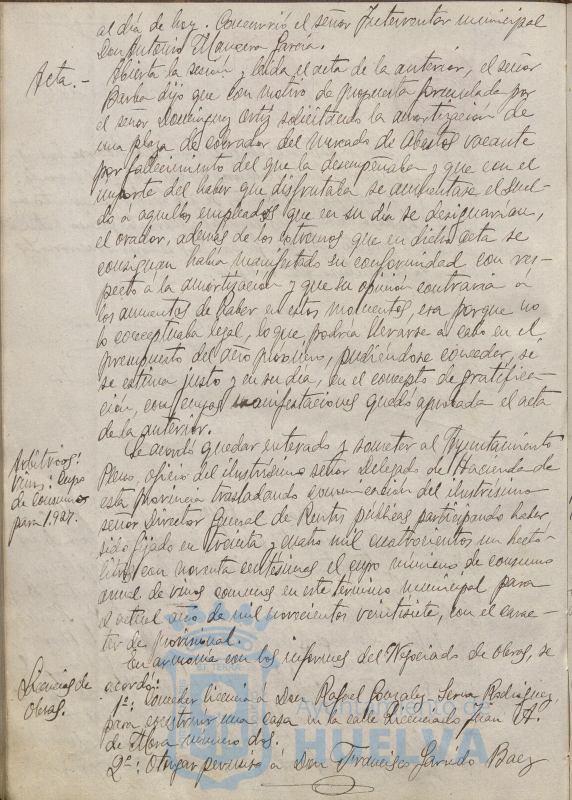 al día de hoy. Concurrió el señor Interventor municipal
Don Antonio Mancera García.
Acta.- Abierta la sesión y leída el acta de la anterior, el señor
Barba dijo que con motivo de propuesta formulada por
el señor Domínguez Ortiz solicitando la amortización de
una plaza de cobrador del Mercado de Abastos vacante
por fallecimiento del que la desempeñaba y que con el
importe del haber que disfrutaba se aumentase el suel-
do a aquellos empleados que en su día se designarían,
el orador, además de los extremos que en dicha acta se
consignan había manifestado su conformidad con res-
pecto a la amortización y que su opinión contraria a
los aumentos de haber en estos momentos, era porque no
lo conceptuaba legal, lo que podría llevarse a cabo en el
presupuesto del año próximo, pudiéndose conceder, si
se estima justo y en su día, en el concepto de gratifica-
ción, con cuyas manifestaciones quedó aprobada el acta
de la anterior.
Arbitrios:
Vinos: Cupo
de Consumos
para 1.927.
Se acordó quedar enterado y someter al Ayuntamiento
Pleno, oficio del ilustrísimo señor Delegado de Hacienda de
esta provincia trasladando comunicación del ilustrísimo
señor Director General de Rentas públicas participando haber
sido fijado en treinta y cuatro mil cuatrocientos un hectó-
litros con noventa centésimas el cupo mínimo de consumo
anual de vinos comunes en este término municipal para
el actual año de mil novecientos veintisiete, con el carac-
ter de provisional.
Licencias de
Obras.
En armonía con los informes del Negociado de Obras, se
acordó:
1º: Conceder licencia a Don Rafael González-Serna Rodríguez
para construir una casa en la calle Licenciado Juan A.
de Mora número dos.
2º: Otorgar permiso a Don Francisco Garrido Baez
Ayuntamiento de
HUELVA